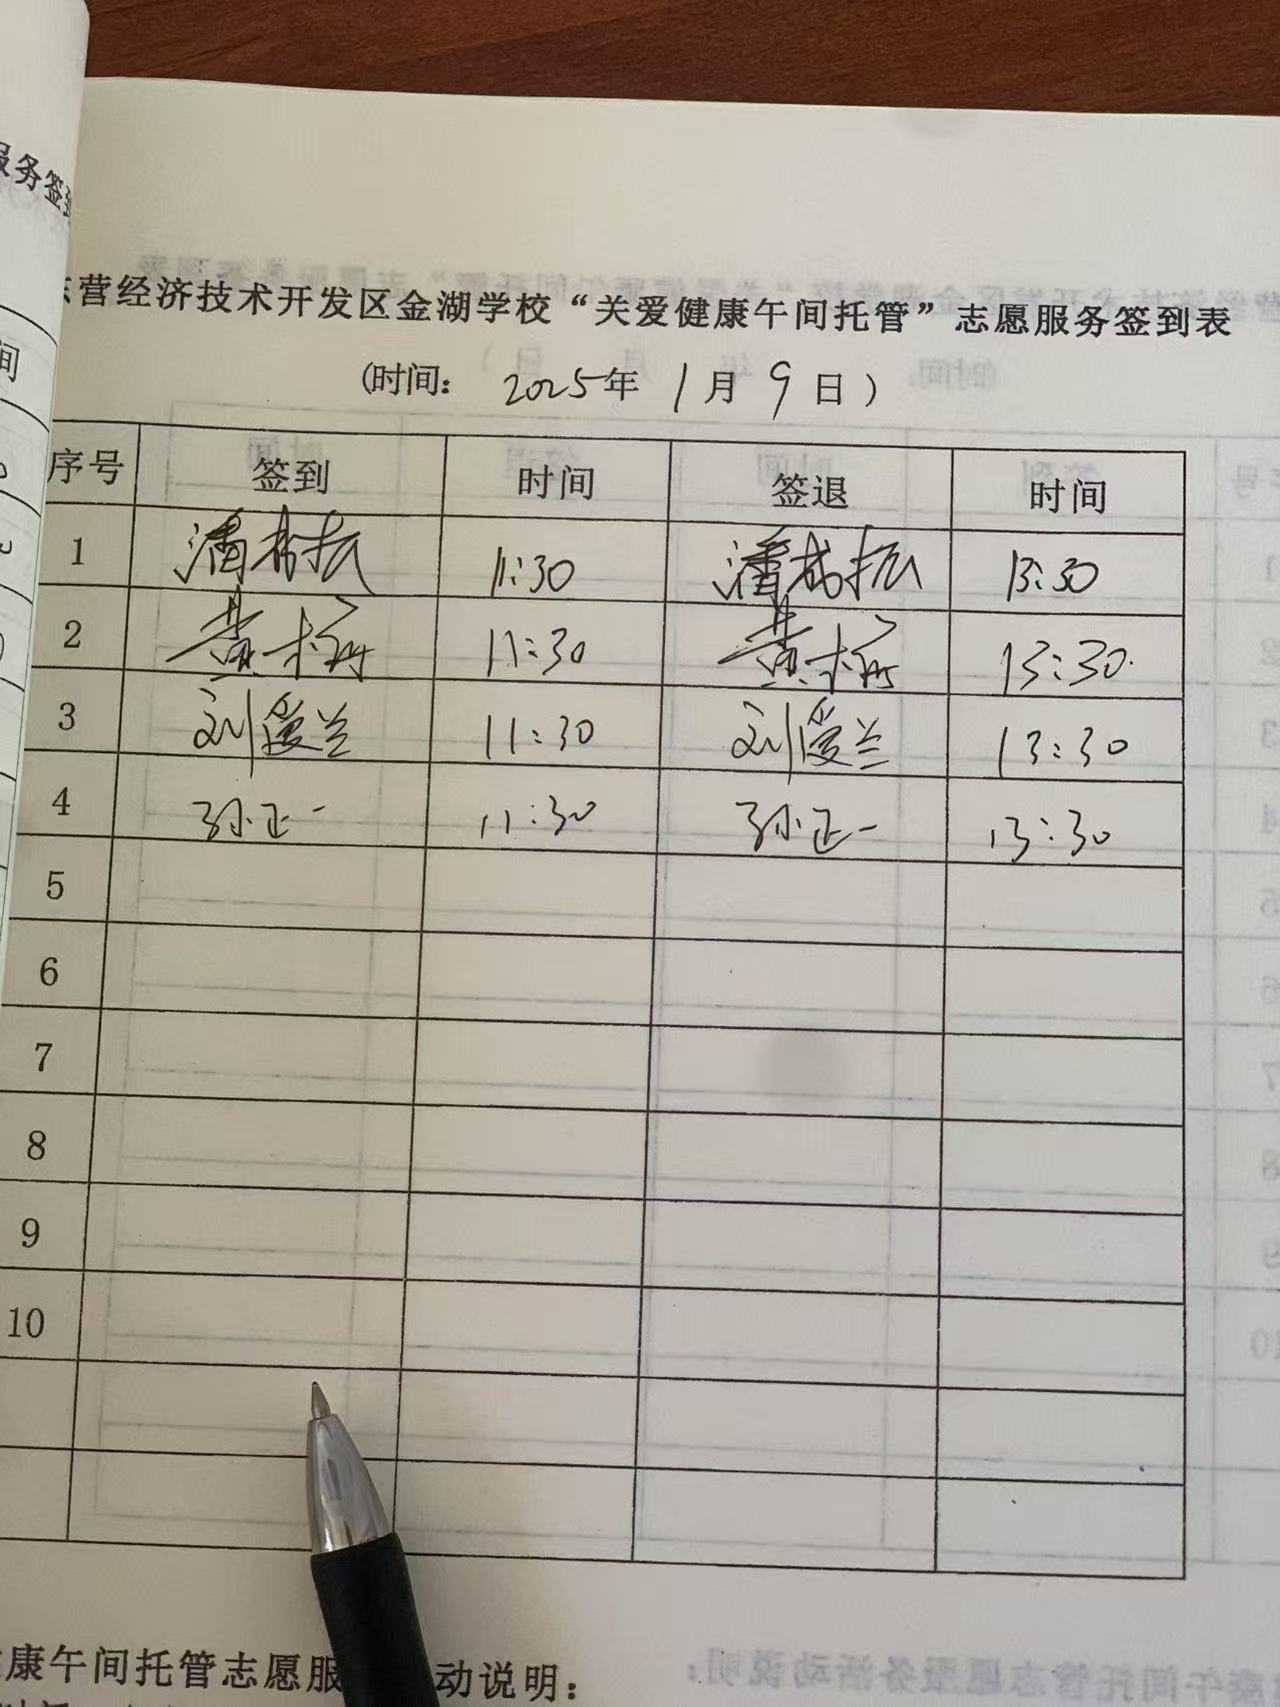 服务签到
间
东营经济技术开发区金湖学校“关爱健康午间托管”志愿服务签到表
(时间: 2025年 1月 9日)
序号 签到 时间 签退 时间
1 潘 振 11:30 潘 振 13:30
2 黄 11:30 黄 13:30
3 刘爱兰 11:30 刘爱兰 13:30
4 孙正一 11:30 孙正一 13:30
5
6
7
8
9
10
康午间托管志愿服 动说明: